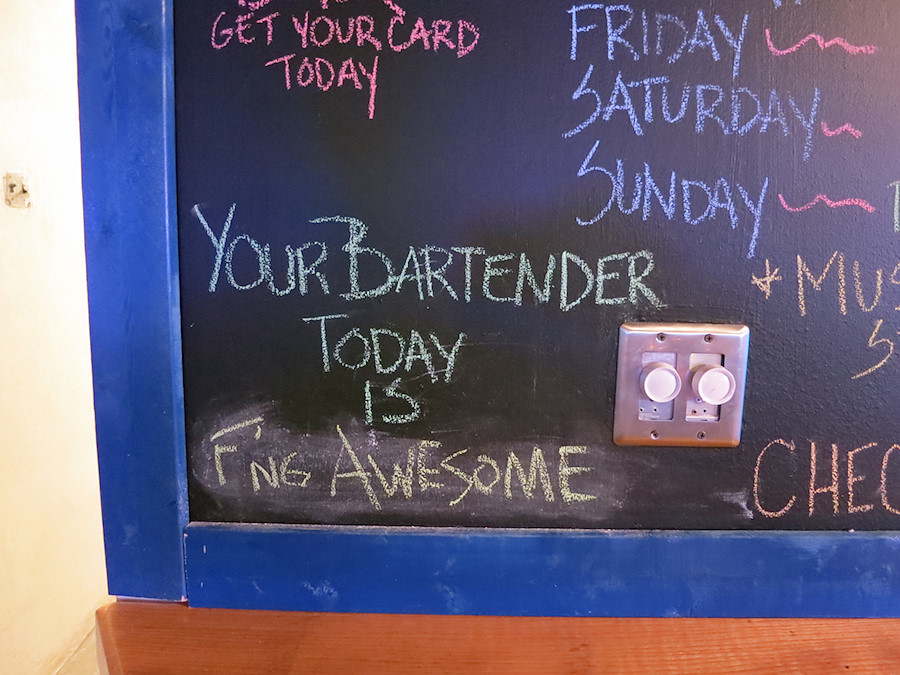 GET YOUR CARD
TODAY
FRIDAY
SATURDAY
SUNDAY
YOUR BARTENDER
TODAY
IS
F'NG AWESOME